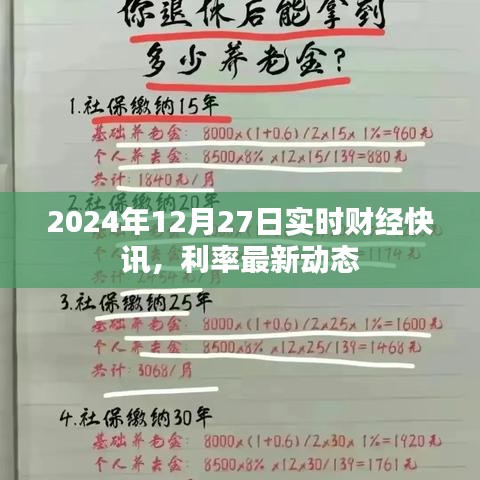 你退休后能拿到
多少养老金?
1.社保缴纳15年
基础养老金: 8000×(1+0.6)/2×15×1%=960元
个人养老金: 8500×8%×12×15/139=880元
共计: 1840元/月
2.社保缴纳20年
2024年12月27日实时财经快
讯，利率最新动态
共计: 2454元/月
3.社保缴纳25年
基础养老金: 8000×(1+0.6)/2×25×1%=1600元
个人养老金: 8500×8%×12×25/139=1468元
共计: 3068/月
4.社保缴纳30年
基础养老金: 8000×(1+0.6)/2×30×1%=1920元
个人养老金: 8500×8%×12×30/139=1761元